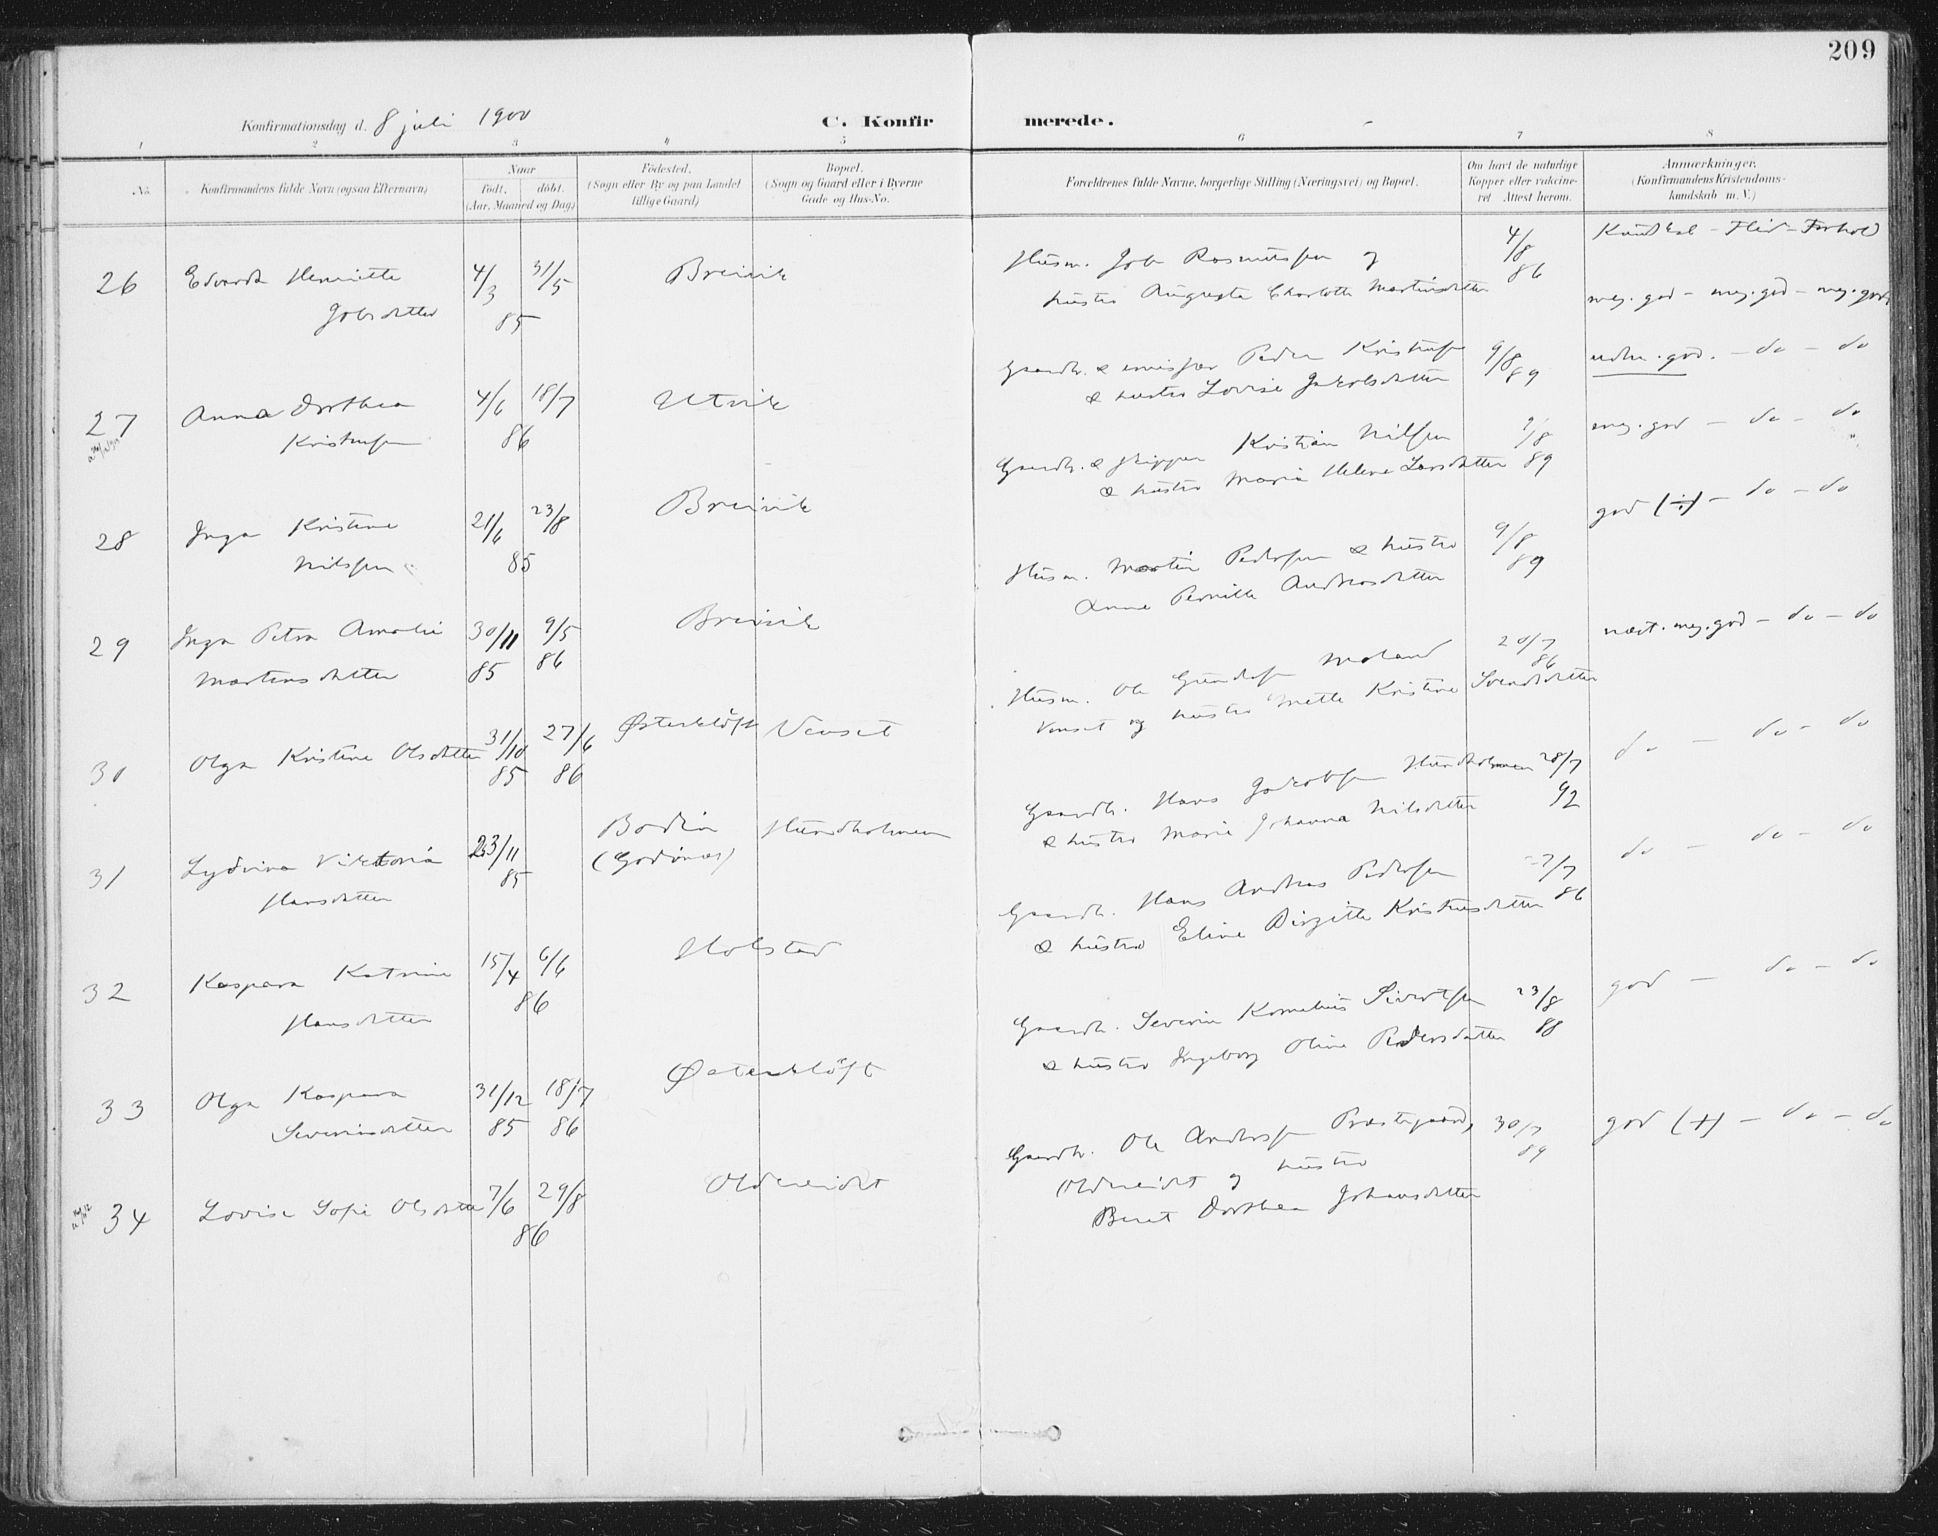 209
Konfirmationsdag d. 8 juli 1900
C. Konfirmerede.
1 2 3 4 5 6 7 8
No.
Konfirmandens fulde Navn (ogsaa Efternavn)
Naar
født. døbt.
(Aar, Maaned og Dag)
Födested.
(Sogn eller By og paa Landet
tillige Gaard)
Bopæl.
(Sogn og Gaard eller i Byerne
Gade og Hus-No.
Forældrenes fulde Navne, borgerlige Stilling (Næringsvei) og Bopæl.
Om havt de naturlige
Kopper eller vakcine-
ret Attest herom.
Anmærkninger.
(Konfirmandens Kristendoms-
kundskab m. V.)
Kundskab - Flid - Forhold
26 Edvarda Henriette 4/3 31/5 Breivik Husm. Job Rasmussen og 4/8
Jobsdatter 85 hustru Augusta Charlotte Martinsdatter 86 meg. god - meg. god - meg. god
27 Anna Dorthea 4/6 18/7 Utvik Gaardbr. & Peder Kristensen 9/8 udm. god. - do - do
Kristensen 86 & hustru Lovise Jakobsdatter 89
28 Inga Kristine 21/6 23/8 Breivik Gaardbr. & skipper Kristian Nilssen 9/8 meg. god - do - do
Nilssen 85 & hustru Maria Helene Larsdatter 89
29 Inga Petra Amalie 30/11 9/5 Breivik Husm. Martin Pedersen & hustru 9/8 god (÷) - do - do
Martensdatter 85 86 Anne Pernille Andreasdatter 89
30 Olga Kristine Olsdatter 31/10 27/6 Østerkløft Venset Husm. Ole Moland 20/7 næst. meg. god - do - do
85 86 Venset og hustru Mette Kristine Svendsdatter 86
31 Lydvina Viktoria 23/11 Bodin Hundholmen Gaardbr. Hans Jakobsen Hundholmen 28/7 do - do - do
Hansdatter 85 (Godønes) & hustru Marie Johanna Nilsdatter 92
32 Kaspara Katrine 15/4 6/6 Holstad Gaardbr. Hans Andreas Pedersen 27/7 do - do - do
Hansdatter 86 & hustru Eline Birgitte Kristensdatter 86
33 Olga Kaspara 31/12 18/7 Østerkløft Gaardbr. Severin Kornelius Sivertsen 23/8 god - do - do
Severinsdatter 85 86 & hustru Ingeborg Oline Pedersdatter 88
34 Lovise Sofie Olsdatter 7/6 29/8 Oldereidet Gaardbr. Ole Anderssen Præstegaard, 30/7 god (+) - do - do
86 Oldereidet og hustru 89
Beret Dorthea Johansdatter